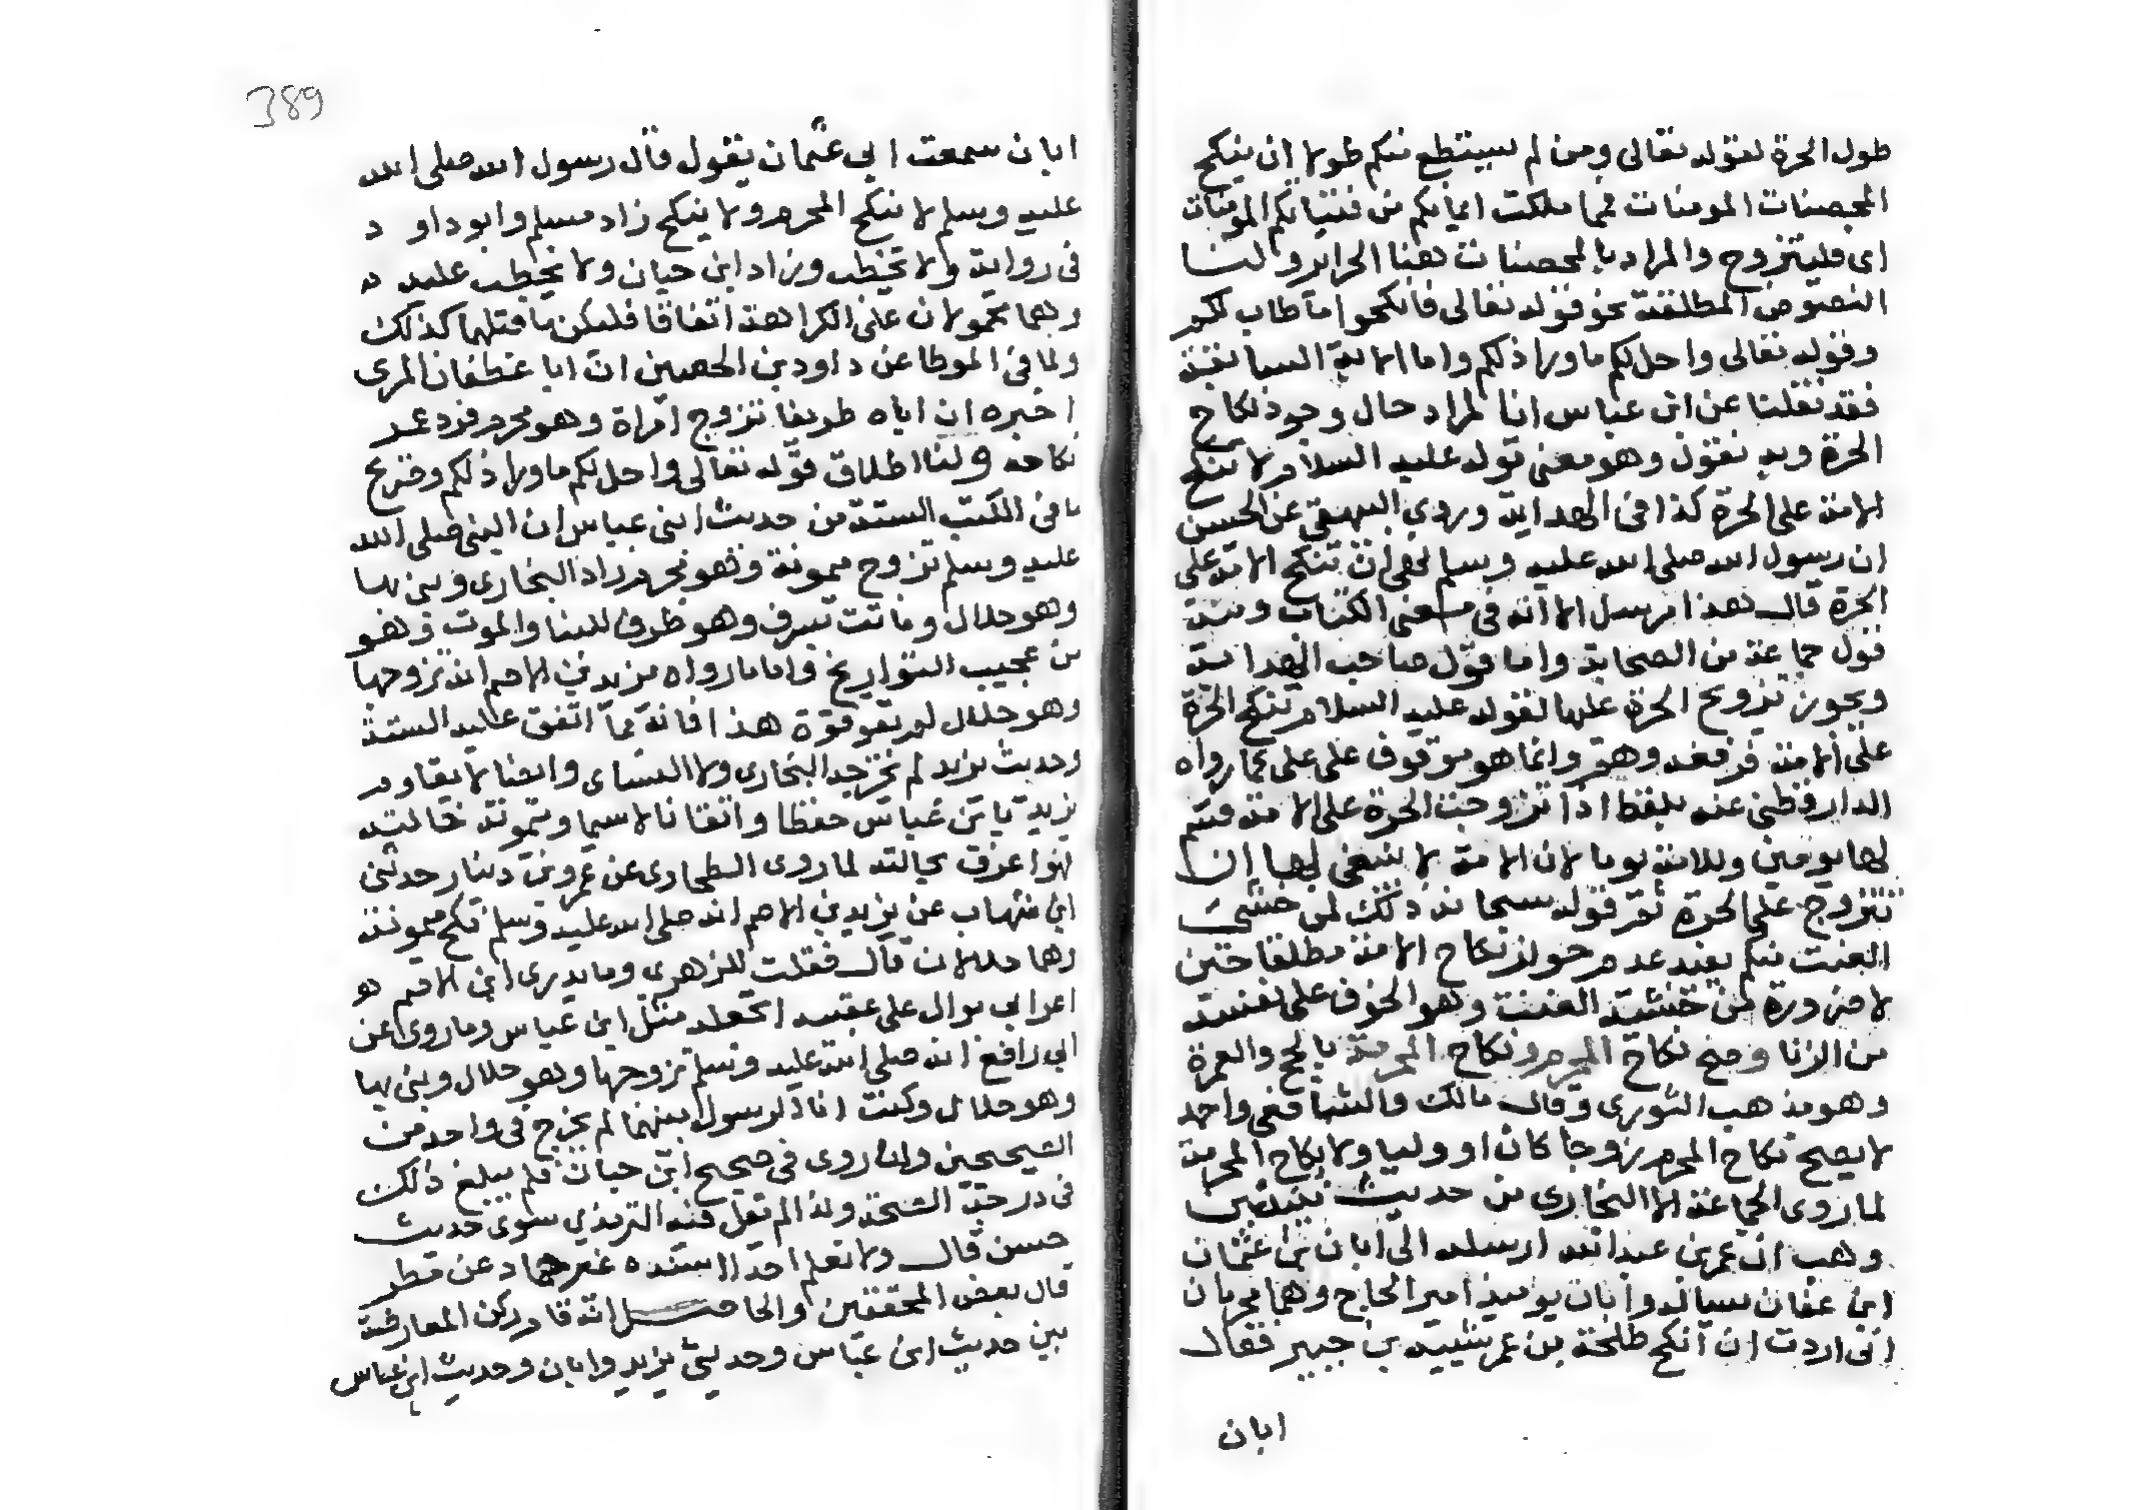 طول الحرة لقوله تعالى ومن لم يستطع منكم طولا ان ينكح
المحصنات المومنات فمما ملكت ايمانكم من فتياتكم المومنات
اى فليتزوج والمراد بالمحصنات هنا الحراير ولنا
النصوص المطلقة نحو قوله تعالى فانكحوا ما طاب لكم
وقوله تعالى واحل لكم ما وراء ذلكم واما الاية السابقة
فقد نقلنا عن ابن عباس ان المراد حال وجود نكاح
الحرة وبه نقول وهو معنى قوله عليه السلام لا تنكح
الامة على الحرة كذا فى الهداية وروى البيهقى عن الحسن
ان رسول الله صلى الله عليه وسلم نهى ان تنكح الامة على
الحرة قال هذا مرسل الا انه فى معنى الكتاب ومعه
قول جماعة من الصحابة واما قول صاحب الهداية
ويجوز تزويج الحرة عليها لقوله عليه السلام تنكح الحرة
على الامة فرفعه وهم وانما هو موقوف على على مما رواه
الدارقطنى عنه بلفظ اذا تزوجت الحرة على الامة قسم
لها يومين وللامة يوما لان الامة لا ينبغى لها ان
تتزوج على الحرة ثم قوله سبحانه ذلك لمن خشى
العنت منكم يفيد عدم جواز نكاح الامة مطلقا حين
لا ضرورة لمن خشية العنت وهو الخوف على نفسه
من الزنا وصح نكاح المحرم ونكاح المحرمة بالحج والعمرة
وهو مذهب الثورى وقال مالك والشافعى واحمد
لا يصح نكاح المحرم زوجا كان او وليا ولا نكاح المحرمة
لما روى الجماعة الا البخارى من حديث نبيه بن
وهب ان عمر بن عبد الله ارسله الى ابان بن عثمان
ابن عفان يساله وابان يوميذ امير الحاج وهما محرمان
انى اردت ان انكح طلحة بن عمر شيبه بن جبير فقال
ابان
389
ابان سمعت ابى عثمان يقول قال رسول الله صلى الله
عليه وسلم لا ينكح المحرم ولا ينكح زاد مسلم وابو داو د
فى رواية ولا يخطب وزاد ابن حبان ولا يخطب عليه
وهما محمولان على الكراهة اتفاقا فليكن ما قبلهما كذلك
ولما فى الموطا عن داود بن الحصين ان ابا غطفان المرى
اخبره ان اباه طريفا تزوج امراة وهو محرم فرد عمر
نكاحه ولنا اطلاق قوله تعالى واحل لكم ما وراء ذلكم وصريح
ما فى الكتب الستة من حديث ابن عباس ان النبى صلى الله
عليه وسلم تزوج ميمونة وهو محرم زاد البخارى وبنى بها
وهو حلال وماتت بسرف وهو ظرف للبنا والموت وهو
من عجيب التواريخ واما ما رواه يزيد بن الاصم انه تزوجها
وهو حلال لم يقو قوة هذا فانه مما اتفق عليه الستة
وحديث يزيد لم يخرجه البخارى ولا النساى وايضا لا يقاوم
يزيد بابن عباس حفظا واتقانا لاسيما وميمونة خالته
فهو اعرف بحالته لما روى الطحاوى عن عمرو بن دينار حدثنى
ابن شهاب عن يزيد بن الاصم انه صلى الله عليه وسلم نكح ميمونة
وهما حلالان قال فقلت للزهرى وما يدرى ابن الاصم هو
اعرابى بوال على عقبيه اتجعله مثل ابن عباس وما روى عن
ابى رافع انه صلى الله عليه وسلم تزوجها وهو حلال وبنى بها
وهو حلال وكنت انا الرسول بينهما لم يخرج فى واحد من
الصحيحين وان روى فى صحيح ابن حبان فلم يبلغ ذلك
فى درجة الصحة ولذا لم يقل فيه الترمذى سوى حديث
حسن قال ولا نعلم احدا اسنده غير حماد عن مطر
قال بعض المحققين والحاصل انه قام ركن المعارضة
بين حديث ابن عباس وحديثى يزيد وابان وحديث ابن عباس